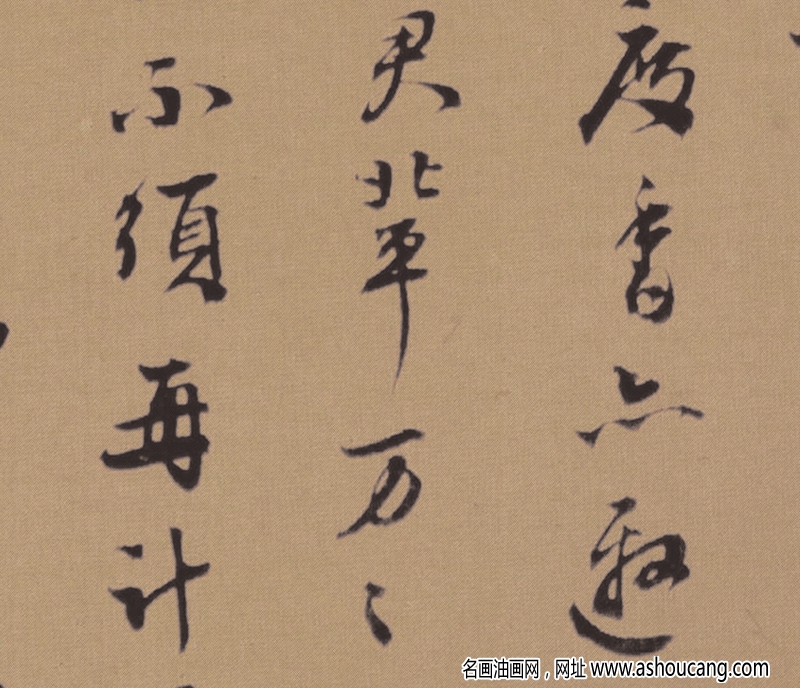 度香亦
輩万々
不須再計
名画油画网，网址 www.ashoucang.com